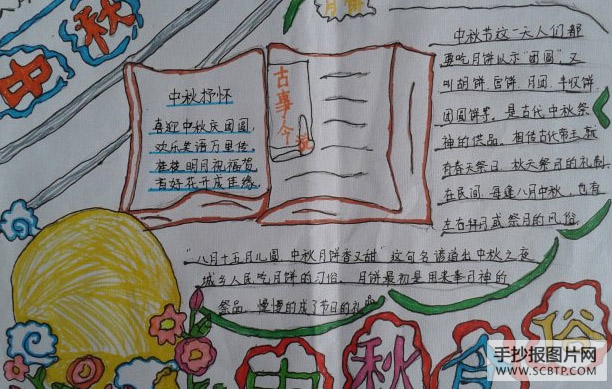 中秋
月饼
中秋抒怀
喜迎中秋庆团圆,
欢乐笑语万里传,
桂枝明月祝福贺
花好月开成佳缘
古事今说
中秋节这一天人们都
要吃月饼以示“团圆”又
叫胡饼、宫饼、月团、丰收饼、
团圆饼等。是古代中秋祭
神的供品。相传古代帝王就
有春天祭日、秋天祭月的礼制,
在民间,每逢八月中秋,也有
左右拜月或祭月的风俗
“八月十五月儿圆,中秋月饼香又甜”这句名谚道出中秋之夜
城乡人民吃月饼的习俗。月饼最初是用来奉月神的
祭品,慢慢的成了节日的礼品
中秋食俗
手抄报图片网
WWW.SCBTP.COM